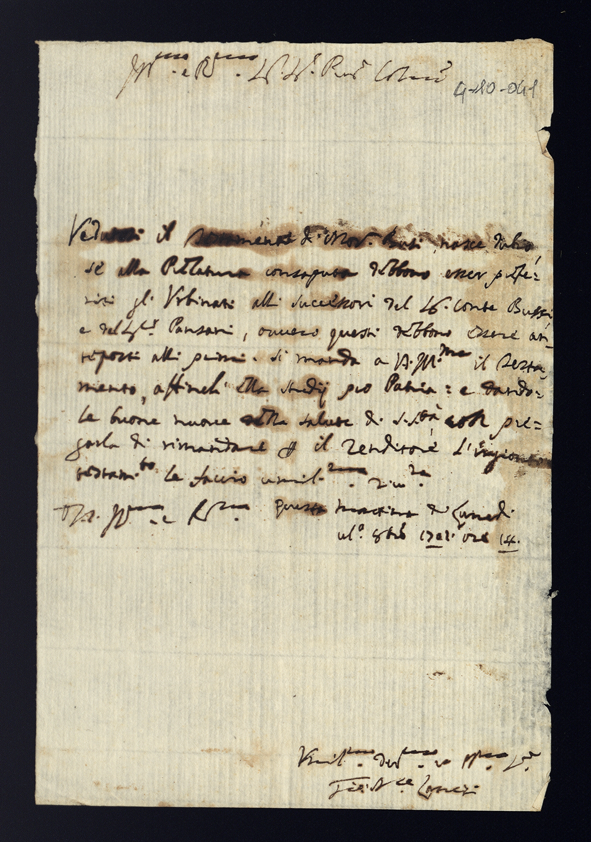 Ill.mo e R.mo Sig. Sig. Pron Col.mo
4-180-041
Veduto il testamento di Mons. nasce dubio
se alla Prelatura debbono esser prefe=
riti gli Urbinati alli successori del Sig. Conte Bussi
e del Sig. Pansani, ovvero questi debbono essere an
teposti alli primi. Si manda a V.S. Ill.ma il testa
mento, affinché ella studij pro Patria: e dando=
le buone nuove della salute di S. S.tà pre=
garla di rimandare p il Zenditore
testam.to le faccio umil.ma riv.za
D V.S. Ill.ma e R.ma questa mattina di Lunedì
ul.o 8bre ore 14.
Umil.mo Dev.mo Se.